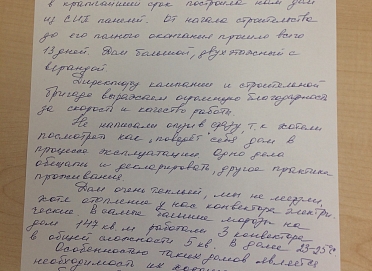 в кратчайший срок построила нам дом
из СИП панелей. От начала строительства
до его полного окончания прошло всего
13 дней. Дом большой, двухэтажный с
верандой.
Директору компании и строительной
бригаде выражаем огромную благодарность
за скорость и качество работы.
Не написали отзыв сразу, т.к. хотели
посмотреть как "поведёт" себя дом в
процессе эксплуатации. Одно дело
обещать и декларировать, другое практика
проживания.
Дом очень теплый, мы не мерзли,
хотя отопление у нас конвектора электри-
ческие. В самые сильные морозы на
дом 147 кв.м работали 3 конвектора
в общей сложности 5 кв. В доме 23-25°С
Особенностью таких домов является
необходимость их хорошо